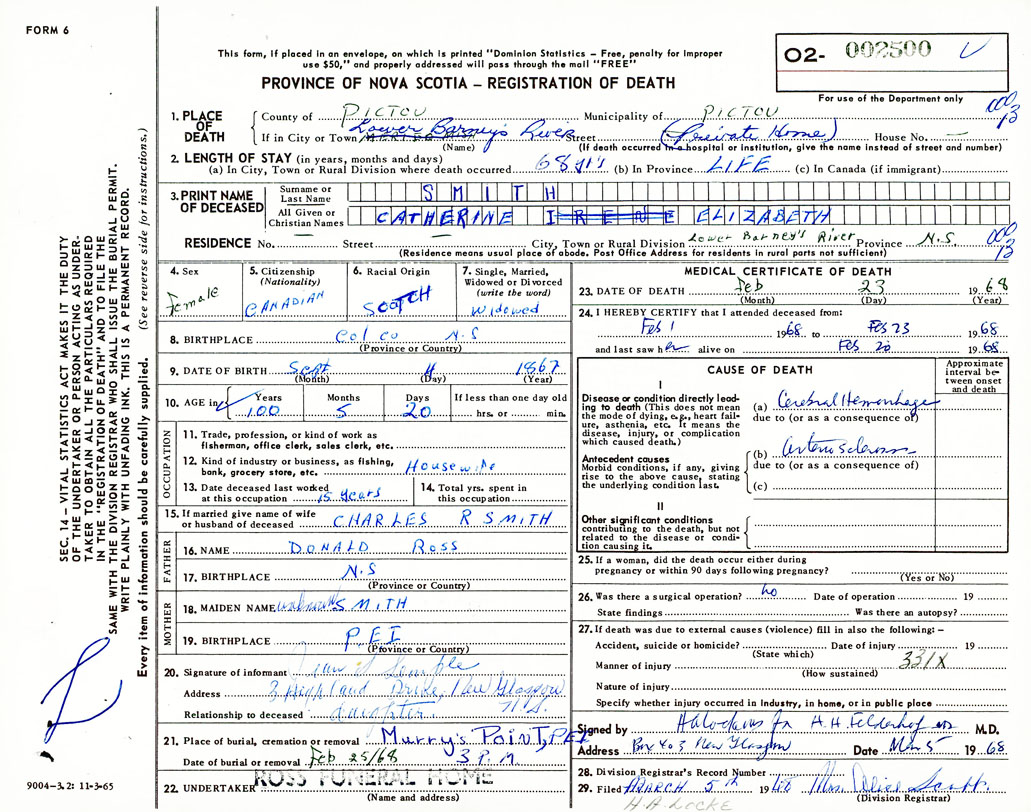 FORM 6
This form, if placed in an envelope, on which is printed "Dominion Statistics – Free, penalty for improper
use $50," and properly addressed will pass through the mail "FREE"
PROVINCE OF NOVA SCOTIA – REGISTRATION OF DEATH
O2- 002500
For use of the Department only
1. PLACE OF DEATH County of PICTOU Municipality of PICTOU
If in City or Town Lower Barney's River Street (Private Home) House No. —
(Name) (If death occurred in a hospital or institution, give the name instead of street and number)
2. LENGTH OF STAY (in years, months and days)
(a) In City, Town or Rural Division where death occurred 68 yrs (b) In Province LIFE (c) In Canada (if immigrant)
3. PRINT NAME OF DECEASED Surname or Last Name SMITH
All Given or Christian Names CATHERINE IRENE ELIZABETH
RESIDENCE No. — Street — City, Town or Rural Division Lower Barney's River Province N.S.
(Residence means usual place of abode. Post Office Address for residents in rural parts not sufficient)
4. Sex Female
5. Citizenship (Nationality) CANADIAN
6. Racial Origin SCOTCH
7. Single, Married, Widowed or Divorced (write the word) Widowed
8. BIRTHPLACE Col co N.S
(Province or Country)
9. DATE OF BIRTH Sept 4 1867
(Month) (Day) (Year)
10. AGE in Years 100 Months 5 Days 20 If less than one day old hrs. or min.
OCCUPATION
11. Trade, profession, or kind of work as fisherman, office clerk, sales clerk, etc.
12. Kind of industry or business, as fishing, bank, grocery store, etc. Housewife
13. Date deceased last worked at this occupation 15 years
14. Total yrs. spent in this occupation
15. If married give name of wife or husband of deceased CHARLES R SMITH
FATHER
16. NAME DONALD ROSS
17. BIRTHPLACE N.S
(Province or Country)
MOTHER
18. MAIDEN NAME unknown SMITH
19. BIRTHPLACE PEI
(Province or Country)
20. Signature of informant Semple
Address 3 Highland Drive, New Glasgow N.S.
Relationship to deceased daughter
21. Place of burial, cremation or removal Murry's Point, PEI
Date of burial or removal Feb 25/68 3 P.M.
22. UNDERTAKER ROSS FUNERAL HOME
(Name and address)
MEDICAL CERTIFICATE OF DEATH
23. DATE OF DEATH Feb 23 1968
(Month) (Day) (Year)
24. I HEREBY CERTIFY that I attended deceased from:
Feb 1 1968 to Feb 23 1968
and last saw her alive on Feb 20 1968
CAUSE OF DEATH
Approximate interval between onset and death
I
Disease or condition directly leading to death (This does not mean the mode of dying, e.g., heart failure, asthenia, etc. It means the disease, injury, or complication which caused death.)
(a) Cerebral Hemorrhage
due to (or as a consequence of)
Antecedent causes
Morbid conditions, if any, giving rise to the above cause, stating the underlying condition last.
(b) Arteriosclerosis
due to (or as a consequence of)
(c)
II
Other significant conditions
contributing to the death, but not related to the disease or condition causing it.
25. If a woman, did the death occur either during pregnancy or within 90 days following pregnancy?
(Yes or No)
26. Was there a surgical operation? no Date of operation 19
State findings Was there an autopsy?
27. If death was due to external causes (violence) fill in also the following: –
Accident, suicide or homicide? Date of injury 19
(State which) 331X
Manner of injury
(How sustained)
Nature of injury
Specify whether injury occurred in Industry, in home, or in public place
Signed by H.H. Felderhof M.D.
Address Box 403 New Glasgow Date Mar 5 1968
28. Division Registrar's Record Number
29. Filed MARCH 5th 19 Mrs.
(Division Registrar)
H.H. LOCKE
SEC. 14 – VITAL STATISTICS ACT MAKES IT THE DUTY
OF THE UNDERTAKER OR PERSON ACTING AS UNDER-
TAKER TO OBTAIN ALL THE PARTICULARS REQUIRED
IN THE "REGISTRATION OF DEATH" AND TO FILE THE
SAME WITH THE DIVISION REGISTRAR WHO SHALL ISSUE THE BURIAL PERMIT.
WRITE PLAINLY WITH UNFADING INK. THIS IS A PERMANENT RECORD.
Every item of information should be carefully supplied. (See reverse side for instructions.)
9004-3.2: 11-3-65